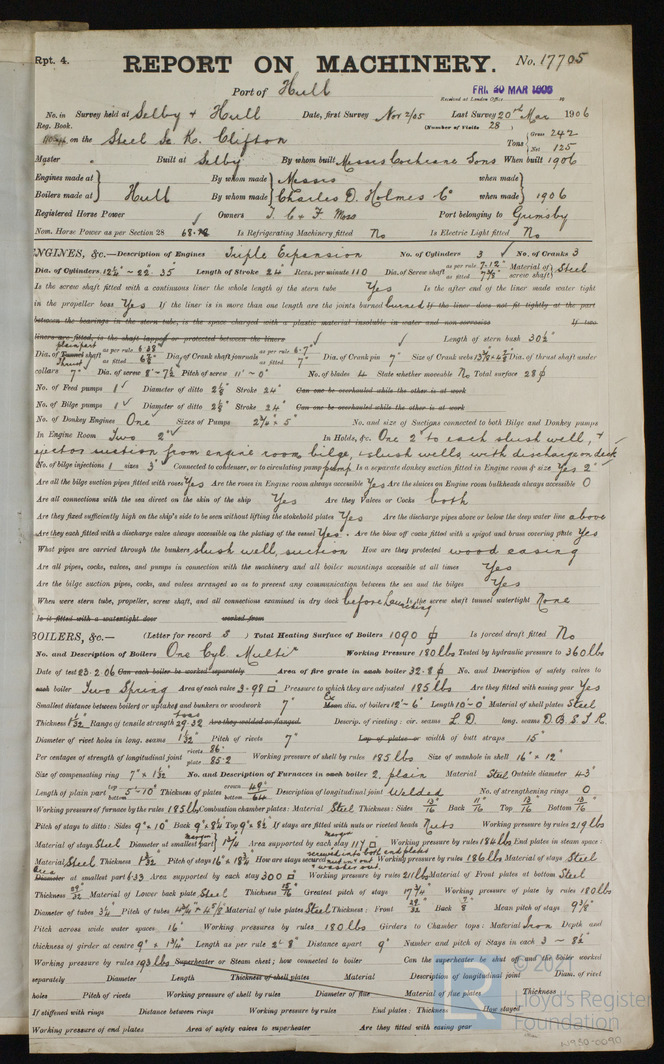 Rpt. 4.
REPORT ON MACHINERY.
No. 17705
Port of Hull
FRI. 30 MAR 1906
Received at London Office
No. in Survey held at Selby & Hull Date, first Survey Nov 2/05 Last Survey 20th Mar 1906
Reg. Book. (Number of Visits 28 )
on the Steel Sc K. Clifton Tons Gross 242 Net 125
Master Built at Selby By whom built Messrs Cochrane Sons When built 1906
Engines made at Hull By whom made Messrs when made
Boilers made at By whom made Charles D. Holmes & Co when made 1906
Registered Horse Power Owners T. C & F. Moss Port belonging to Grimsby
Nom. Horse Power as per Section 28 68. Is Refrigerating Machinery fitted No Is Electric Light fitted No
ENGINES, &c.—Description of Engines Triple Expansion No. of Cylinders 3 No. of Cranks 3
Dia. of Cylinders 12½" – 22. 35" Length of Stroke 24" Revs. per minute 110 Dia. of Screw shaft as per rule 7.12" as fitted 7⅜" Material of screw shaft Steel
Is the screw shaft fitted with a continuous liner the whole length of the stern tube Yes Is the after end of the liner made water tight
in the propeller boss Yes If the liner is in more than one length are the joints burned burned If the liner does not fit tightly at the part
between the bearings in the stern tube, is the space charged with a plastic material insoluble in water and non-corrosive If two
liners are fitted, is the shaft lapped or protected between the liners Length of stern bush 30½"
Dia. of Tunnel shaft plain part as per rule 6.38 as fitted 6¾" Dia. of Crank shaft journals as per rule 6.7" as fitted 7" Dia. of Crank pin 7" Size of Crank webs Dia. of thrust shaft under
collars 7" Dia. of screw 8'–7½ Pitch of screw 11'–0" No. of blades 4 State whether moveable No Total surface 28 ϕ
No. of Feed pumps 1 Diameter of ditto 2⅛" Stroke 24" Can one be overhauled while the other is at work
No. of Bilge pumps 1 Diameter of ditto 2⅛" Stroke 24" Can one be overhauled while the other is at work
No. of Donkey Engines One Sizes of Pumps 2¾" × 5" No. and size of Suctions connected to both Bilge and Donkey pumps
In Engine Room Two 2" In Holds, &c. One 2" to each slush well, &
ejector suction from engine room bilge, & slush wells with discharge on deck
No. of bilge injections 1 sizes 3" Connected to condenser, or to circulating pump pump Is a separate donkey suction fitted in Engine room & size Yes 2"
Are all the bilge suction pipes fitted with roses Yes Are the roses in Engine room always accessible Yes Are the sluices on Engine room bulkheads always accessible 0
Are all connections with the sea direct on the skin of the ship Yes Are they Valves or Cocks both
Are they fixed sufficiently high on the ship's side to be seen without lifting the stokehold plates Yes Are the discharge pipes above or below the deep water line above
Are they each fitted with a discharge valve always accessible on the plating of the vessel Yes Are the blow off cocks fitted with a spigot and brass covering plate Yes
What pipes are carried through the bunkers slush well, suction How are they protected wood casing
Are all pipes, cocks, valves, and pumps in connection with the machinery and all boiler mountings accessible at all times Yes
Are the bilge suction pipes, cocks, and valves arranged so as to prevent any communication between the sea and the bilges Yes
When were stern tube, propeller, screw shaft, and all connections examined in dry dock before launching Is the screw shaft tunnel watertight None
Is it fitted with a watertight door worked from
BOILERS, &c.— (Letter for record S ) Total Heating Surface of Boilers 1090 ϕ Is forced draft fitted No
No. and Description of Boilers One Cyl. Multir Working Pressure 180 lbs Tested by hydraulic pressure to 360 lbs
Date of test 23.2.06 Can each boiler be worked separately Area of fire grate in each boiler 32.8 ϕ No. and Description of safety valves to
each boiler Two Spring Area of each valve 3.98 Pressure to which they are adjusted 185 lbs Are they fitted with easing gear Yes
Smallest distance between boilers or uptakes and bunkers or woodwork 7" Ex Mean dia. of boilers 12'–6" Length 10'–0" Material of shell plates Steel
Thickness 1 1/32 Range of tensile strength 29.32 tons Are they welded or flanged Descrip. of riveting: cir. seams L D. long. seams D. B. S. T. R.
Diameter of rivet holes in long. seams 1 1/32" Pitch of rivets 7" Lap of plates or width of butt straps 15"
Per centages of strength of longitudinal joint rivets 86. plate 85.2 Working pressure of shell by rules 185 lbs Size of manhole in shell 16" × 12"
Size of compensating ring 7" × 1 1/32 No. and Description of Furnaces in each boiler 2, plain Material Steel Outside diameter 43"
Length of plain part top bottom 5'–10" Thickness of plates crown bottom 49/64 Description of longitudinal joint Welded No. of strengthening rings 0
Working pressure of furnace by the rules 185 lbs Combustion chamber plates: Material Steel Thickness: Sides 13/16 Back 11/16 Top 13/16 Bottom 13/16
Pitch of stays to ditto: Sides 9" × 10" Back 9" × 8¾ Top 9" × 8½ If stays are fitted with nuts or riveted heads Nuts Working pressure by rules 219 lbs
Material of stays Steel Diameter at smallest part 1¾ Area supported by each stay 117 Working pressure by rules 184 lbs End plates in steam space:
Material Steel Thickness 1 1/32 Pitch of stays 16" × 18¾ How are stays secured Working pressure by rules 186 lbs Material of stays Steel
Area Diameter at smallest part 6.33 Area supported by each stay 300 Working pressure by rules 211 lbs Material of Front plates at bottom Steel
Thickness 29/32 Material of Lower back plate Steel Thickness 15/16 Greatest pitch of stays 17¾" Working pressure of plate by rules 180 lbs
Diameter of tubes 3¼" Pitch of tubes 4¾" × 4⅝" Material of tube plates Steel Thickness: Front 29/32 Back 7/8 Mean pitch of stays 9⅜"
Pitch across wide water spaces 16" Working pressures by rules 180 lbs Girders to Chamber tops: Material Iron Depth and
thickness of girder at centre 9" × 1¾" Length as per rule 2' 8" Distance apart 9" Number and pitch of Stays in each 3 – 8½"
Working pressure by rules 193 lbs Superheater or Steam chest; how connected to boiler Can the superheater be shut off and the boiler worked
separately Diameter Length Thickness of shell plates Material Description of longitudinal joint Diam. of rivet
holes Pitch of rivets Working pressure of shell by rules Diameter of flue Material of flue plates Thickness
If stiffened with rings Distance between rings Working pressure by rules End plates: Thickness How stayed
Working pressure of end plates Area of safety valves to superheater Are they fitted with easing gear
© 2021
Lloyd's Register
Foundation
W950-0090